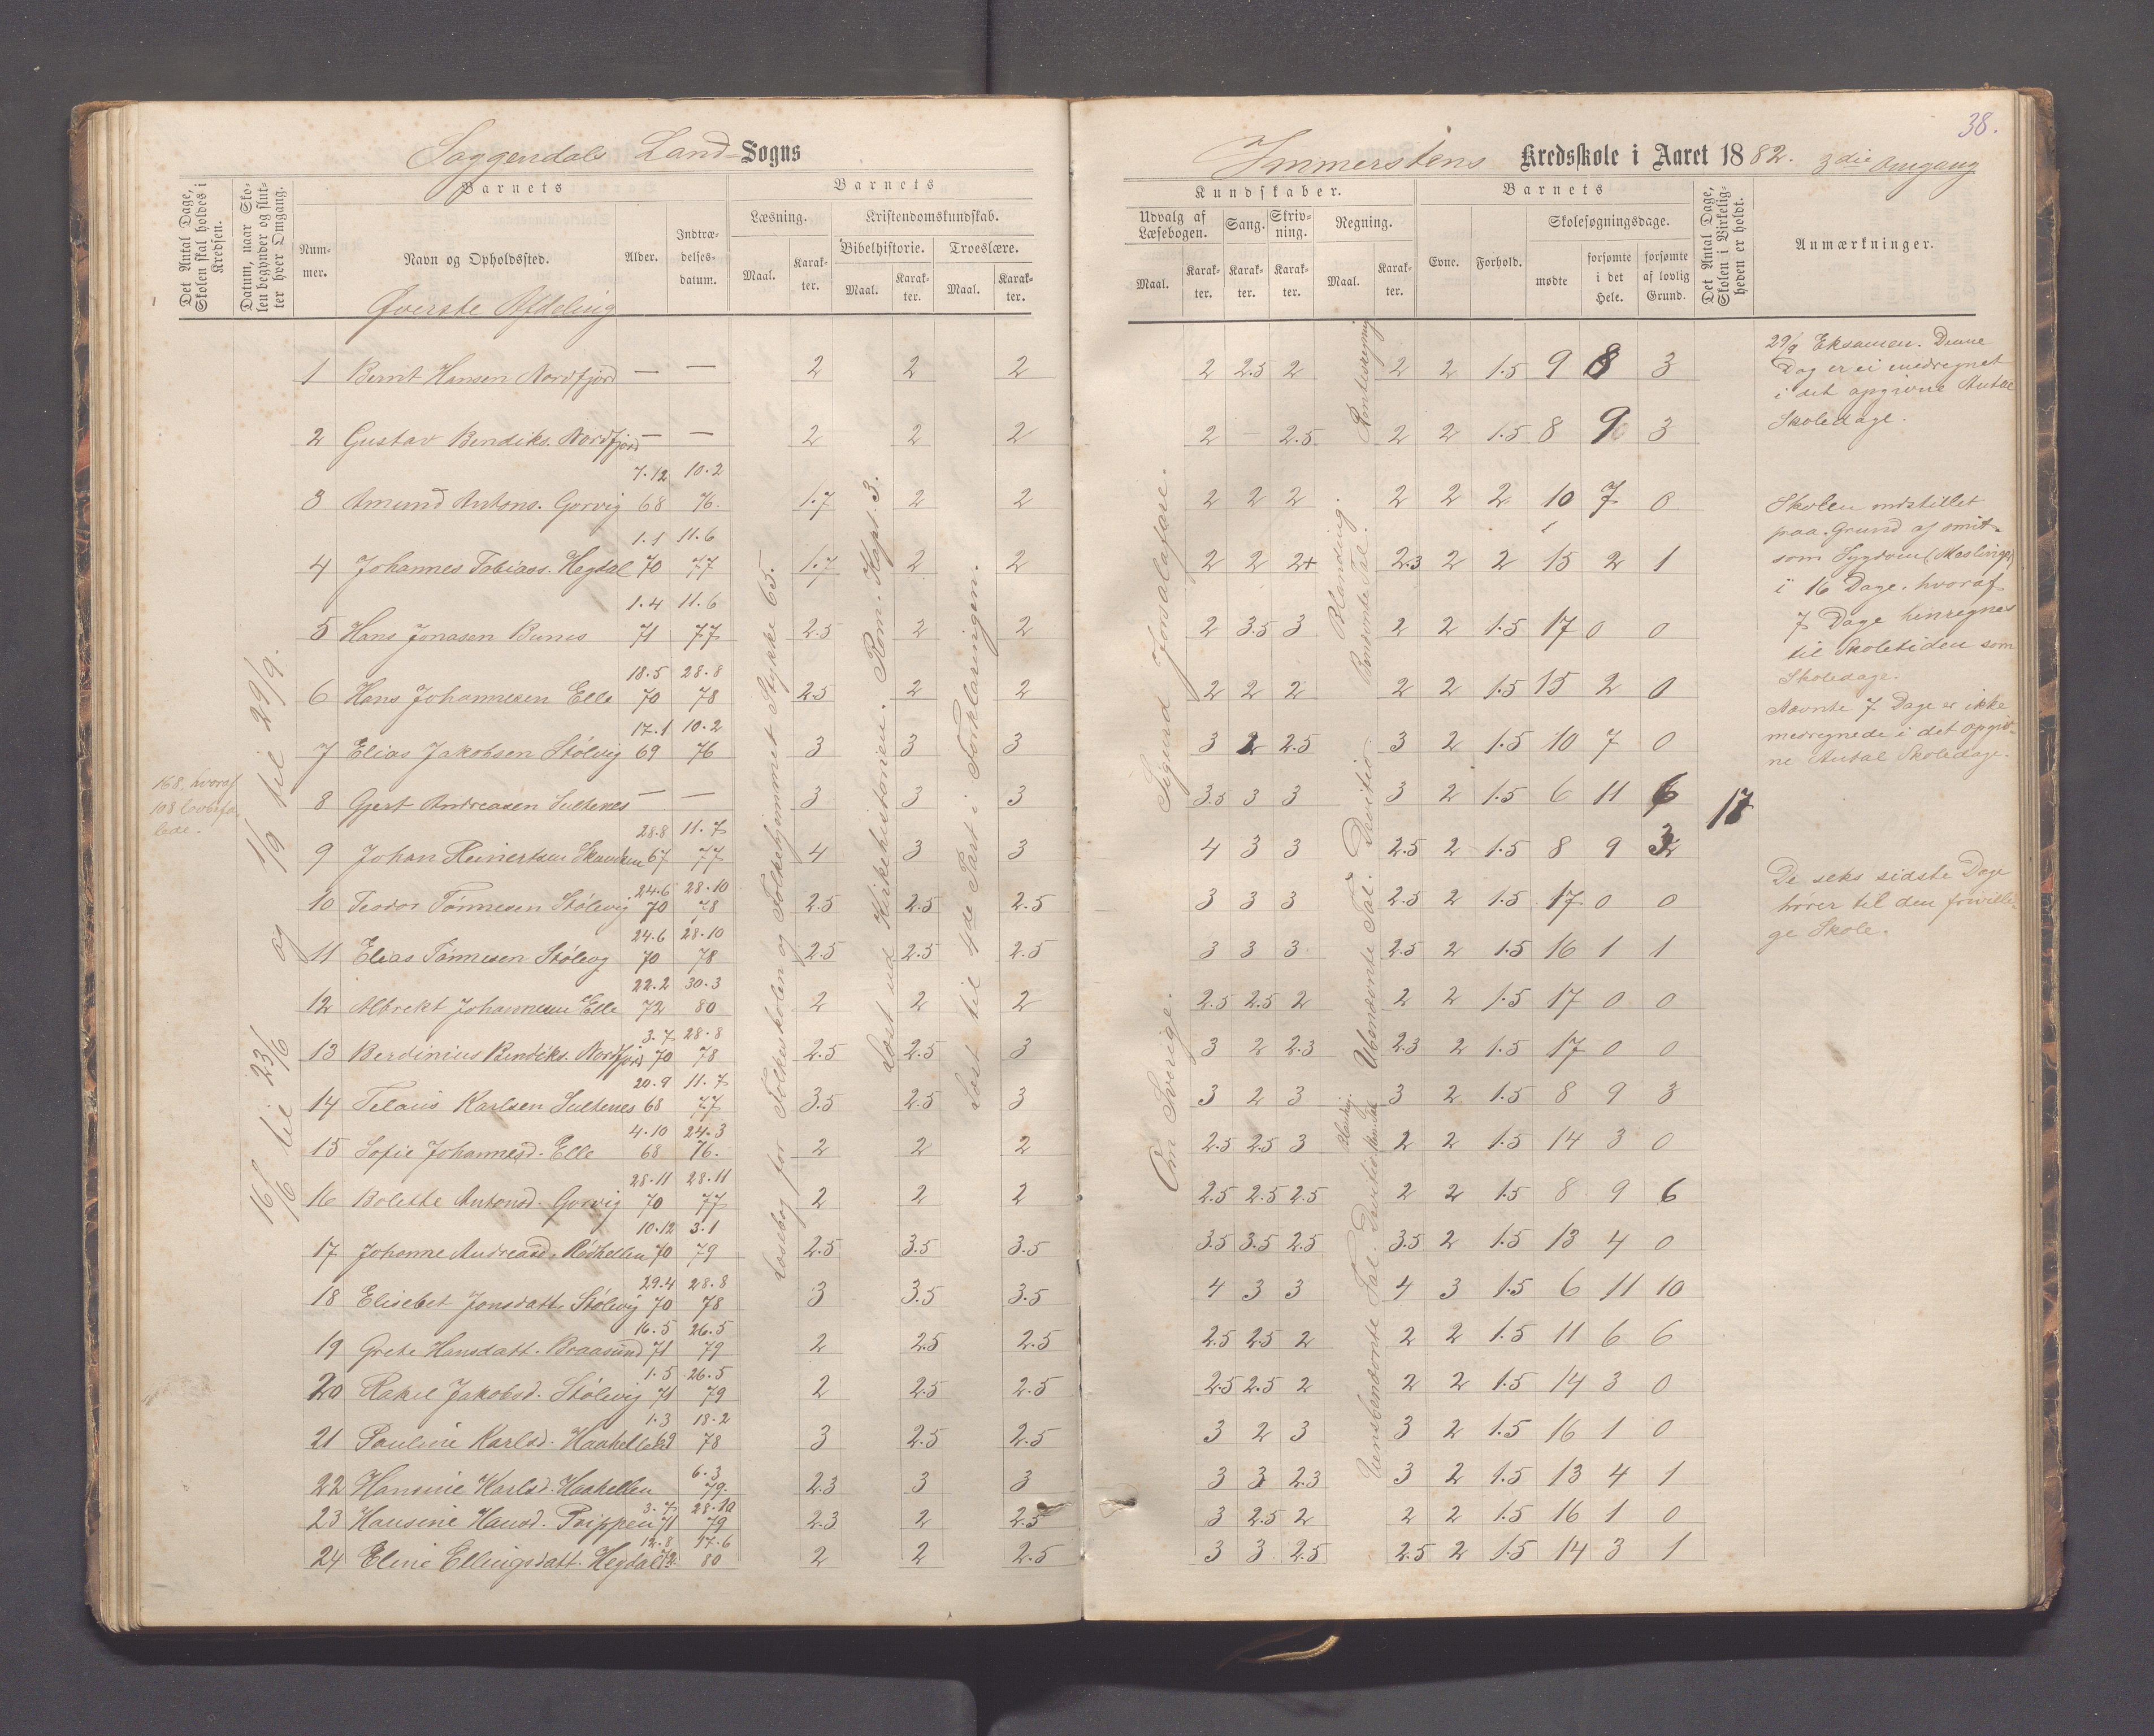 Soggendals Land Sogns
Det Antal Dage, Skolen skal holdes i Kredsen.
Datum, naar Skolen begynder og slutter hver Omgang.
Barnets
Nummer.
Navn og Opholdssted.
Alder.
Indtrædelsesdatum.
Barnets
Læsning.
Maal.
Karakter.
Kristendomskundskab.
Bibelhistorie.
Maal.
Karakter.
Troeslære.
Maal.
Karakter.
Øverste Afdeling
168, hvoraf
16/6 til 23/6 og 1/9 til 29/9.
Læsebog for Folkeskolen og Folkehjemmet Stykke 65.
Læst ud Kirkehistorien. Rom. Kapt. 3.
Læst til 4de Part i Forklaringen.
1 Bernt Hansen Nordfjord — — 2 2 2
2 Gustav Bendiks. Nordfjord — — 2 2 2
7.12 10.2
3 Amund Antons. Gorvig 68 76. 1.7 2 2
1.1 11.6
4 Johannes Tobiaos. Hegdal 70 77 1.7 2 2
1.4 11.6
5 Hans Jonasen Bunes 71 77 2.5 2 2
18.5 28.8
6 Hans Johannesen Elle 70 78 2.5 2 2
17.1 10.2
7 Elias Jakobsen Stølevig 69 76 3 3 3
8 Gjert Andreasen Sultenes — — 3 3 3
28.8 11.7
9 Johan Reinertsen 67 77 4 3 3
24.6 28.10
10 Teodor Tønnesen Stølevig 70 78 2.5 2.5 2.5
24.6 28.10
11 Elias Tønnesen Stølevg 70 78 2.5 2.5 2.5
22.2 30.3
12 Albrekt Johannesen Elle 72 80 2 2 2
3.7 28.8
13 Berdinius Bendiks. Nordfjord 70 78 2.5 2.5 3
20.9 11.7
14 Telaus Karlsen Sultenes 68 77 3.5 2.5 3
4.10 24.3
15 Sofie Johannesd. Elle 68 76. 2 2 2
28.11 28.11
16 Bolette Antonsd. Gorvig 70 77 2 2 2
10.12 3.1
17 Johanne Andreasd. Rødhellen 70 79 2.5 3.5 3.5
29.4 28.8
18 Elisebet Jonsdatt. Stølevig 70 78 3 3.5 3.5
16.5 26.5
19 Grete Hansdatt. Braasund 71 79 2 2.5 2.5
1.5 26.5
20 Rakel Jakobsd. Stølevig 71 79 2 2.5 2.5
1.3 18.2
21 Pauline Karlsd. Haahellen 69 78 3 2.5 2.5
6.3
22 Hansine Karlsd. Haahellen 79. 2.3 3 3
3.7 28.10
23 Hansine Hansd. Trippen 71 79 2.3 2 2.5
12.8 17.6
24 Eline Ellingsdatt. Hegdal 72. 80 2 2 2.5
38.
Immerstens Kredsskole i Aaret 1882. 3die Omgang
Kundskaber.
Udvalg af Læsebogen.
Maal.
Karakter.
Sang.
Karakter.
Skrivning.
Karakter.
Regning.
Maal.
Karakter.
Barnets
Evne.
Forhold.
Skolesøgningsdage.
mødte
forsømte i det Hele.
forsømte af lovlig Grund.
Det Antal Dage, Skolen i Virkeligheden er holdt.
Anmærkninger.
Om Sverige. Sigurd Jorsalafare.
Rentesregning
Ubenævnte Tal. Divitio. Benævnte Tal. Blanding.
Uensbenævnte Tal. Divitio.
2 2.5 2 2 2 1.5 9 8 3
2 — 2.5 2 2 1.5 8 9 3
2 2 2 2 2 2 10 7 0
2 2 2+ 2.3 2 2 15 2 1
2 3.5 3 2 2 1.5 17 0 0
2 2 2 2 2 1.5 15 2 0
3 2 2.5 3 2 1.5 10 7 0
3.5 3 3 3 2 1.5 6 11 6
17
4 3 3 2.5 2 1.5 8 9 3
3 3 3 2.5 2 1.5 17 0 0
3 3 3 2.5 2 1.5 16 1 1
2.5 2.5 2 2 2 1.5 17 0 0
3 2 2.3 2.3 2 1.5 17 0 0
3 2 3 3 2 1.5 8 9 3
2.5 2.5 3 2 2 1.5 14 3 0
2.5 2.5 2.5 2 2 1.5 8 9 6
3.5 3.5 2.5 3.5 2 1.5 13 4 0
4 3 3 4 3 1.5 6 11 10
2.5 2.5 2 2 2 1.5 11 6 6
2.5 2.5 2 2 2 1.5 14 3 0
3 2 3 3 2 1.5 16 1 0
3 3 2.3 3 2 1.5 13 4 1
3 2.5 2 2 2 1.5 16 1 0
3 3 2.5 2.5 2 1.5 14 3 1
29/9 Eksamen. Denne
Dag er ei medregnet
i det opgivne Antal
Skoledage.
Skolen indstillet
paa Grund af smit-
som Sygdom (Mæslinger)
i 16 Dage, hvoraf
7 Dage henregnes
til Skoletiden som
Skoledage.
Nævnte 7 Dage er ikke
medregnede i det opgiv-
ne Antal Skoledage.
De seks sidste Dage
hører til den frivilli-
ge Skole.